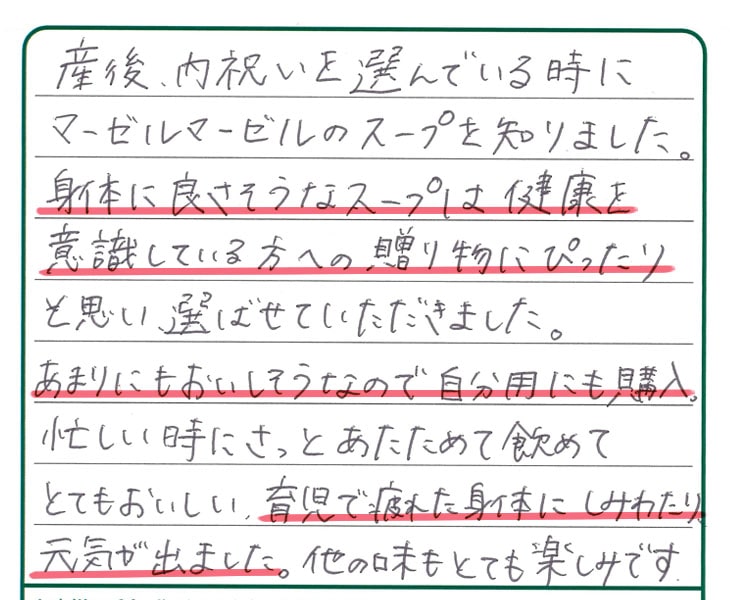 産後、内祝いを選んでいる時に
マーゼルマーゼルのスープを知りました。
身体に良さそうなスープは健康を
意識している方への贈り物にぴったり
と思い、選ばせていただきました。
あまりにもおいしそうなので自分用にも購入。
忙しい時にさっとあたためて飲めて
とてもおいしい、育児で疲れた身体にしみわたり、
元気が出ました。他の味もとても楽しみです